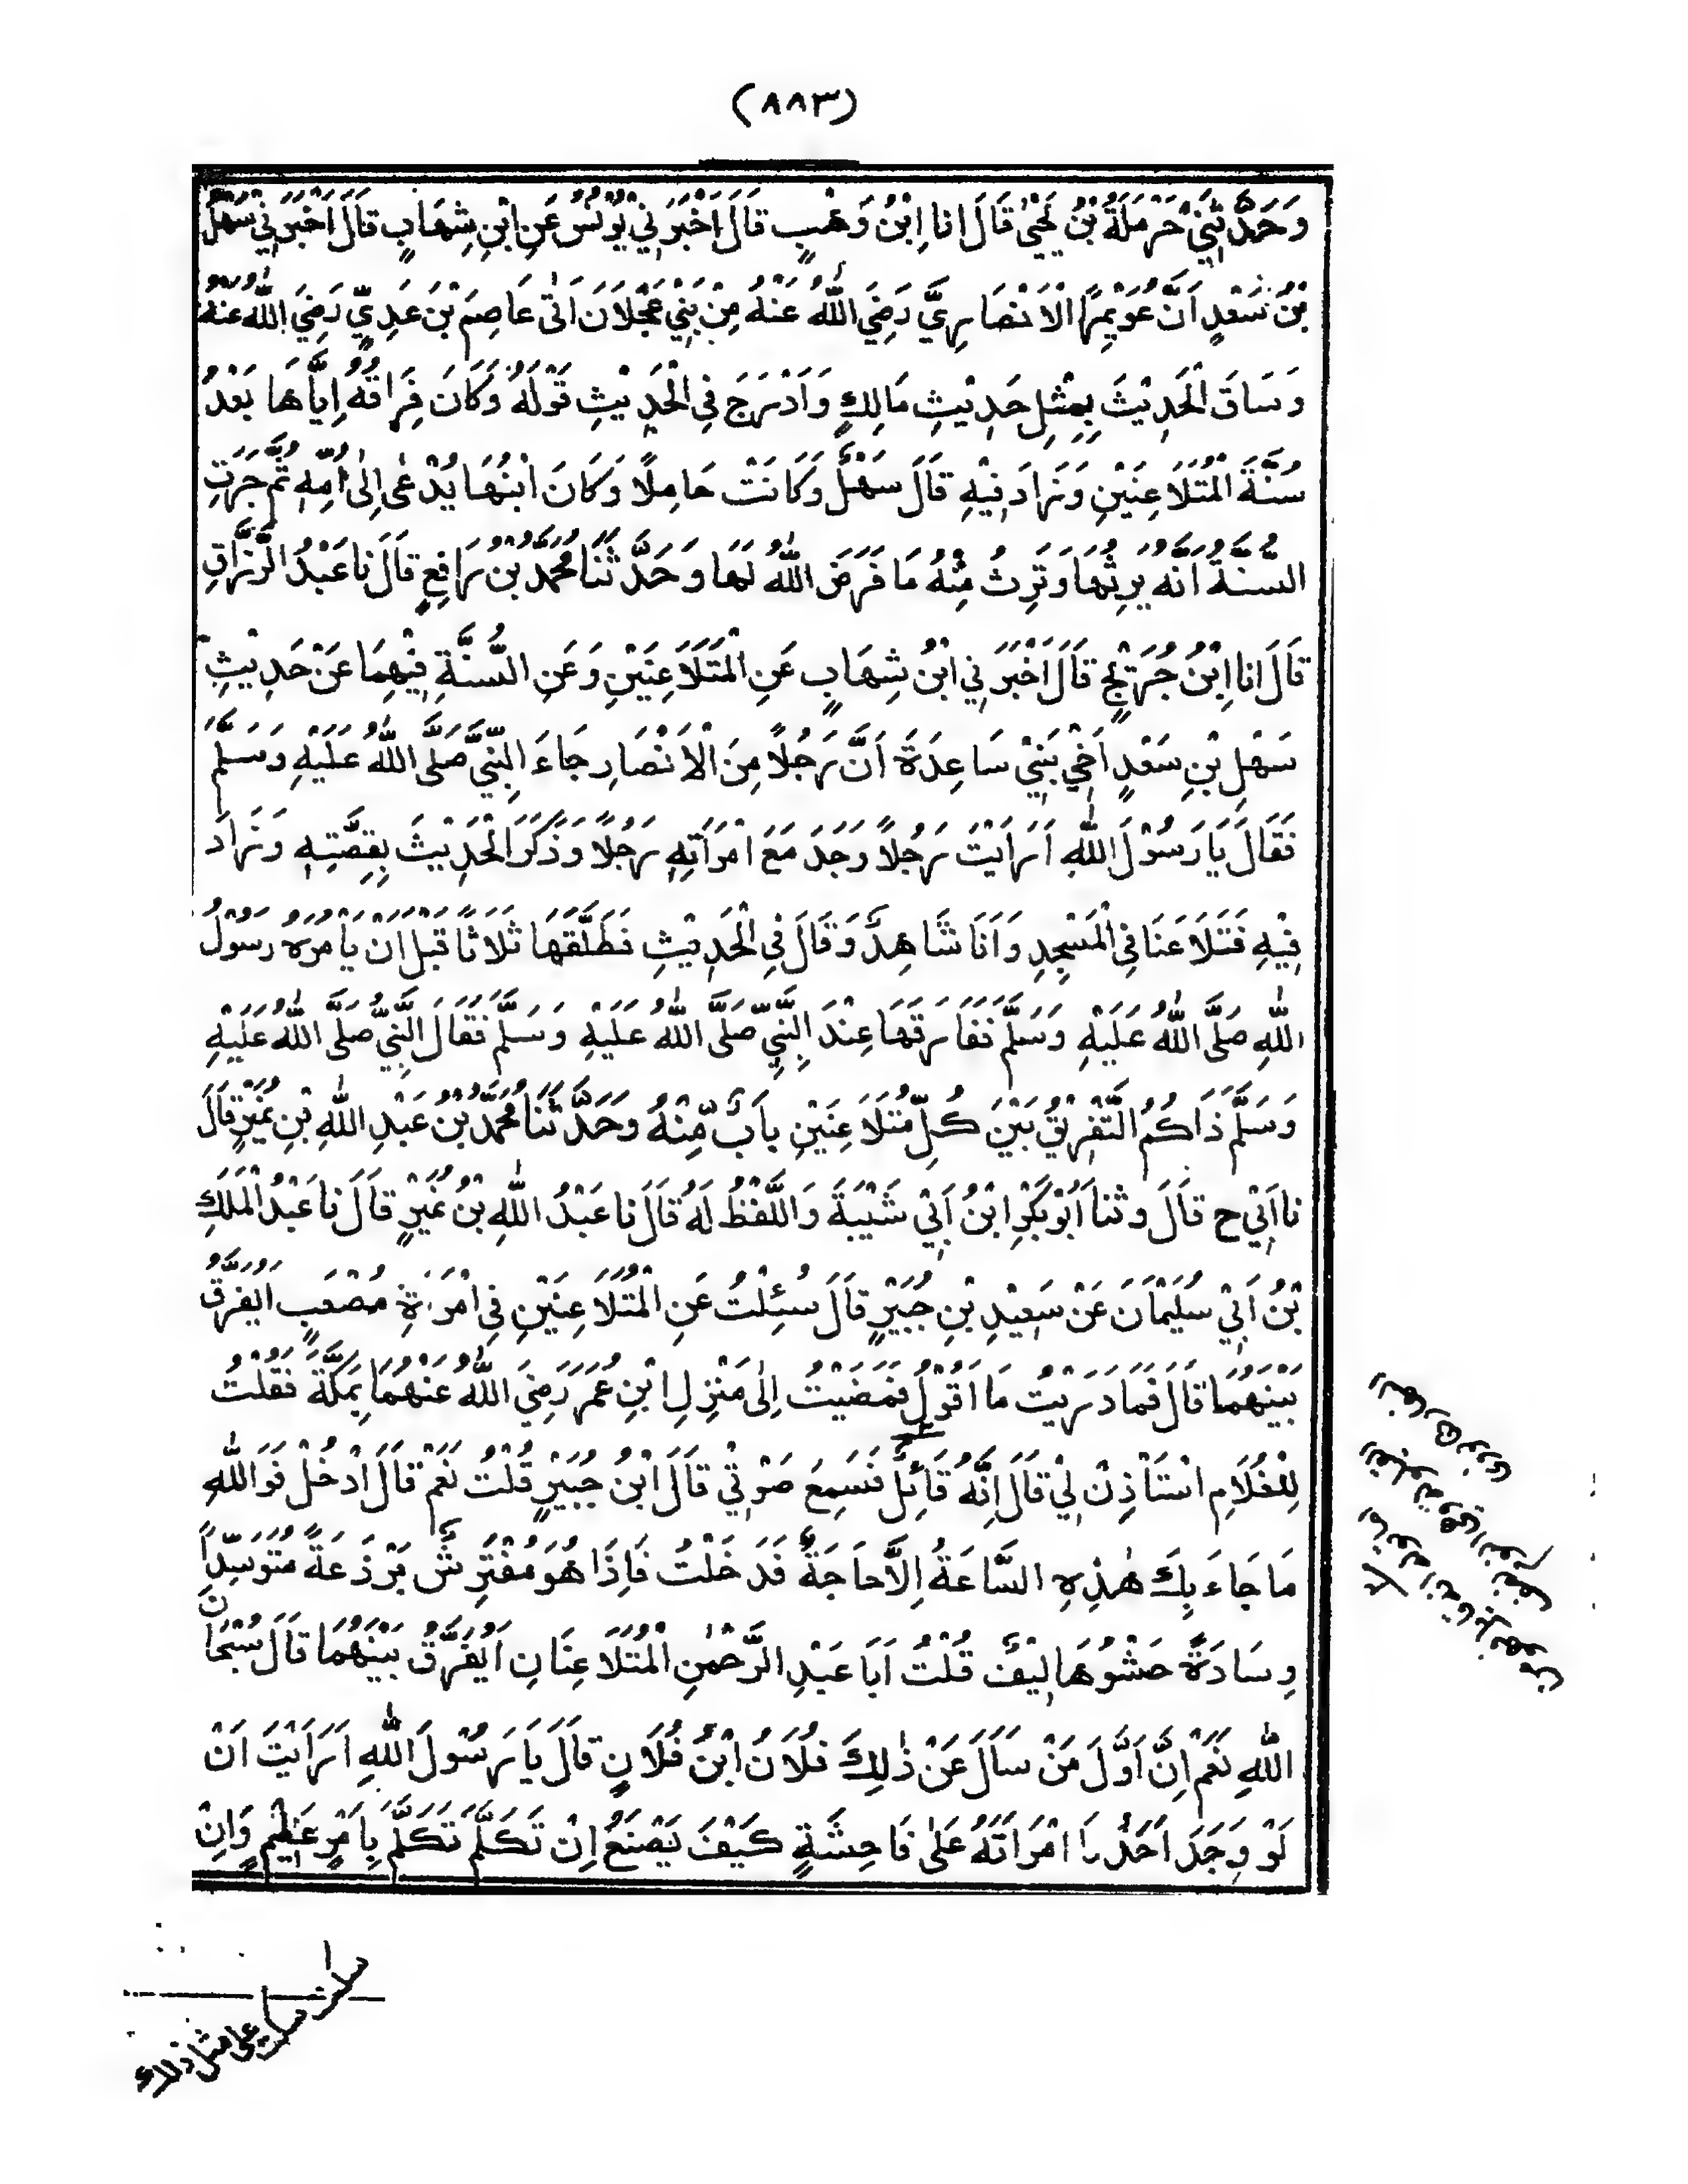 (٨٨٣)
وَحَدَّثَنِيْ حَرْمَلَةُ بْنُ يَحْيٰى قَالَ انا ابْنُ وَهْبٍ قَالَ اَخْبَرَنِيْ يُوْنُسُ عَنِ ابْنِ شِهَابٍ قَالَ اَخْبَرَنِيْ سَهْلُ
بْنُ سَعْدٍ اَنَّ عُوَيْمِرًا الْاَنْصَارِيَّ رَضِيَ اللّٰهُ عَنْهُ مِنْ بَنِيْ عَجْلَانَ اَتٰى عَاصِمَ بْنَ عَدِيٍّ رَضِيَ اللّٰهُ عَنْهُ
وَسَاقَ الْحَدِيْثَ بِمِثْلِ حَدِيْثِ مَالِكٍ وَاَدْرَجَ فِي الْحَدِيْثِ قَوْلَهُ وَكَانَ فِرَاقُهُ اِيَّاهَا بَعْدُ
سُنَّةَ الْمُتَلَاعِنَيْنِ وَزَادَ فِيْهِ قَالَ سَهْلٌ وَكَانَتْ حَامِلًا وَكَانَ ابْنُهَا يُدْعٰى اِلٰى اُمِّهٖ ثُمَّ جَرَتِ
السُّنَّةُ اَنَّهُ يَرِثُهَا وَتَرِثُ مِنْهُ مَا فَرَضَ اللّٰهُ لَهَا وَحَدَّثَنَا مُحَمَّدُ بْنُ رَافِعٍ قَالَ نا عَبْدُ الرَّزَّاقِ
قَالَ انا ابْنُ جُرَيْجٍ قَالَ اَخْبَرَنِي ابْنُ شِهَابٍ عَنِ الْمُتَلَاعِنَيْنِ وَعَنِ السُّنَّةِ فِيْهِمَا عَنْ حَدِيْثِ
سَهْلِ بْنِ سَعْدٍ اَخِيْ بَنِيْ سَاعِدَةَ اَنَّ رَجُلًا مِنَ الْاَنْصَارِ جَاءَ النَّبِيَّ صَلَّى اللّٰهُ عَلَيْهِ وَسَلَّمَ
فَقَالَ يَا رَسُوْلَ اللّٰهِ اَرَاَيْتَ رَجُلًا وَجَدَ مَعَ امْرَاَتِهٖ رَجُلًا وَذَكَرَ الْحَدِيْثَ بِقِصَّتِهٖ وَزَادَ
فِيْهِ فَتَلَاعَنَا فِي الْمَسْجِدِ وَاَنَا شَاهِدٌ وَقَالَ فِي الْحَدِيْثِ فَطَلَّقَهَا ثَلَاثًا قَبْلَ اَنْ يَاْمُرَهُ رَسُوْلُ
اللّٰهِ صَلَّى اللّٰهُ عَلَيْهِ وَسَلَّمَ فَفَارَقَهَا عِنْدَ النَّبِيِّ صَلَّى اللّٰهُ عَلَيْهِ وَسَلَّمَ فَقَالَ النَّبِيُّ صَلَّى اللّٰهُ عَلَيْهِ
وَسَلَّمَ ذَاكُمُ التَّفْرِيْقُ بَيْنَ كُلِّ مُتَلَاعِنَيْنِ بَابٌ مِّنْهُ وَحَدَّثَنَا مُحَمَّدُ بْنُ عَبْدِ اللّٰهِ بْنِ نُمَيْرٍ قَالَ
نا اَبِيْ ح قَالَ وثنا اَبُوْ بَكْرِ ابْنُ اَبِيْ شَيْبَةَ وَاللَّفْظُ لَهُ قَالَ نا عَبْدُ اللّٰهِ بْنُ نُمَيْرٍ قَالَ نا عَبْدُ الْمَلِكِ
بْنُ اَبِيْ سُلَيْمَانَ عَنْ سَعِيْدِ بْنِ جُبَيْرٍ قَالَ سُئِلْتُ عَنِ الْمُتَلَاعِنَيْنِ فِي امْرَاَةِ مُصْعَبٍ اَيُفَرَّقُ
بَيْنَهُمَا قَالَ فَمَا دَرَيْتُ مَا اَقُوْلُ فَمَضَيْتُ اِلٰى مَنْزِلِ ابْنِ عُمَرَ رَضِيَ اللّٰهُ عَنْهُمَا بِمَكَّةَ فَقُلْتُ
لِلْغُلَامِ اسْتَاْذِنْ لِيْ قَالَ اِنَّهُ قَائِلٌ فَسَمِعَ صَوْتِيْ قَالَ ابْنُ جُبَيْرٍ قُلْتُ نَعَمْ قَالَ ادْخُلْ فَوَاللّٰهِ
مَا جَاءَ بِكَ هٰذِهِ السَّاعَةَ اِلَّا حَاجَةٌ فَدَخَلْتُ فَاِذَا هُوَ مُفْتَرِشٌ بَرْذَعَةً مُتَوَسِّدًا
وِسَادَةً حَشْوُهَا لِيْفٌ قُلْتُ اَبَا عَبْدِ الرَّحْمٰنِ الْمُتَلَاعِنَانِ اَيُفَرَّقُ بَيْنَهُمَا قَالَ سُبْحَانَ
اللّٰهِ نَعَمْ اِنَّ اَوَّلَ مَنْ سَاَلَ عَنْ ذٰلِكَ فُلَانُ ابْنُ فُلَانٍ قَالَ يَا رَسُوْلَ اللّٰهِ اَرَاَيْتَ اَنْ
لَوْ وَجَدَ اَحَدُنَا امْرَاَتَهُ عَلٰى فَاحِشَةٍ كَيْفَ يَصْنَعُ اِنْ تَكَلَّمَ تَكَلَّمَ بِاَمْرٍ عَظِيْمٍ وَّاِنْ
على مثل ذلك